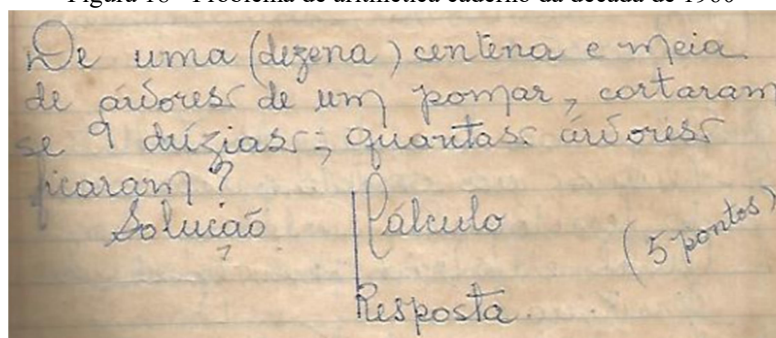 De uma (dezena) centena e meia
de árvores de um pomar, cortaram
se 9 dúzias; quantas árvores
ficaram?
Solução
Cálculo
(5 pontos)
Resposta